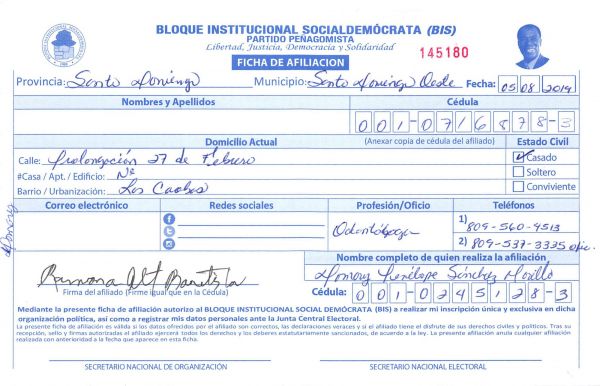 BLOQUE INSTITUCIONAL SOCIALDEMÓCRATA (BIS)
PARTIDO PEÑAGOMISTA
Libertad, Justicia, Democracia y Solidaridad
FICHA DE AFILIACION
145180
Provincia: Santo Domingo Municipio: Santo Domingo Oeste Fecha: 05 08 2019
Nombres y Apellidos Cédula
001-0716878-3
Domicilio Actual (Anexar copia de cédula del afiliado) Estado Civil
Calle: Prolongación 27 de Febrero Casado
#Casa / Apt. / Edificio: Nº Soltero
Barrio / Urbanización: Los Caobos Conviviente
Correo electrónico Redes sociales Profesión/Oficio Teléfonos
Odontóloga
1) 809-560-4513
2) 809-537-3335 ofic.
Nombre completo de quien realiza la afiliación
Penélope Sánchez Morillo
Ramona Alt Bautista
Firma del afiliado (Firme igual que en la Cédula)
Cédula: 001-0245128-3
Mediante la presente ficha de afiliación autorizo al BLOQUE INSTITUCIONAL SOCIAL DEMÓCRATA (BIS) a realizar mi inscripción única y exclusiva en dicha
organización política, así como a registrar mis datos personales ante la Junta Central Electoral.
La presente ficha de afiliación es válida si los datos ofrecidos por el afiliado son correctos, las declaraciones veraces y si el afiliado tiene el disfrute de sus derechos civiles y políticos. Tras su
recepción, sello y firmas autorizadas el afiliado ejercerá todos los derechos y los deberes estatutariamente sancionados, de acuerdo a la ley. La presente afiliación anula cualquier afiliación
realizada con anterioridad a la fecha que aparece en esta ficha.
SECRETARIO NACIONAL DE ORGANIZACIÓN SECRETARIO NACIONAL ELECTORAL